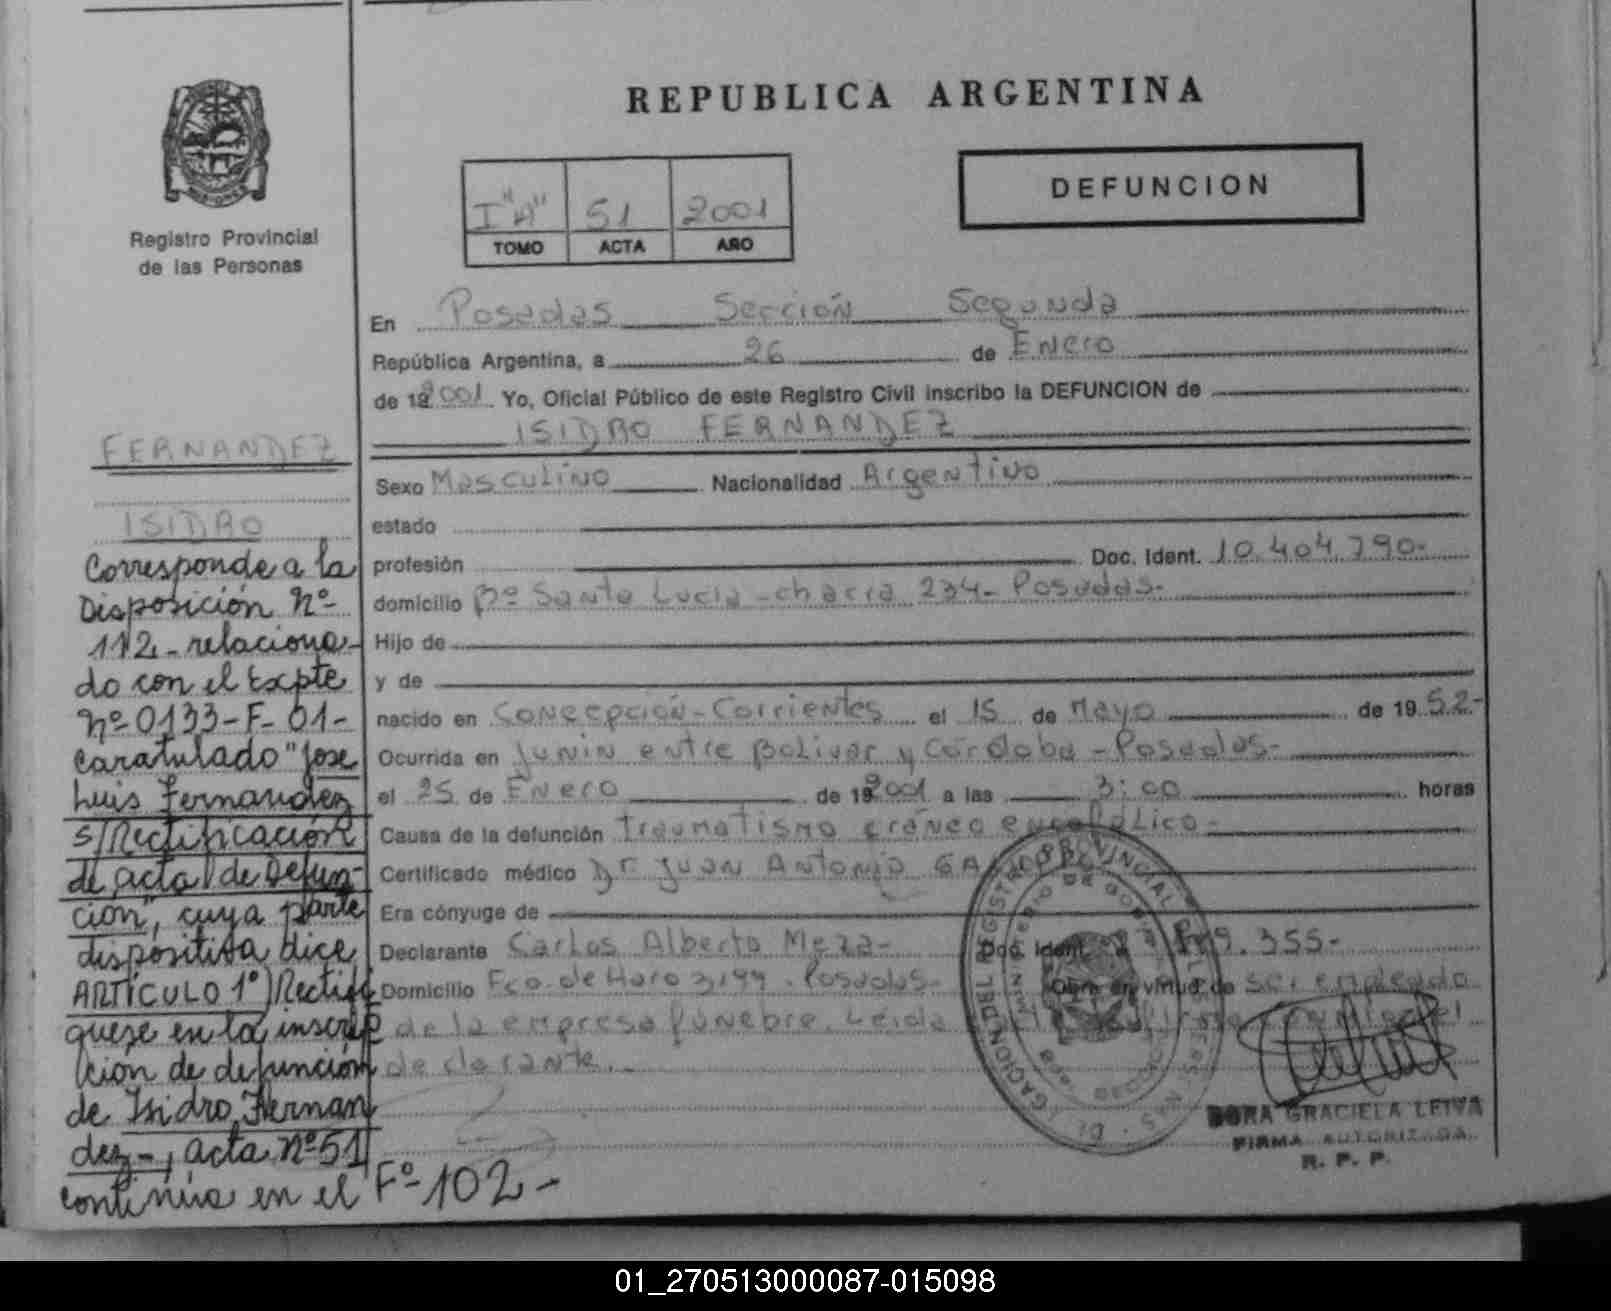 REPUBLICA ARGENTINA
DEFUNCION
I"A" 51 2001
TOMO ACTA AÑO
Registro Provincial
de las Personas
En Posadas Sección Segunda
República Argentina, a 26 de Enero
de 2001 Yo, Oficial Público de este Registro Civil inscribo la DEFUNCION de
ISIDRO FERNANDEZ
Sexo Masculino Nacionalidad Argentino
estado
profesión Doc. Ident. 10.404.790-
domicilio Bº Santa Lucia - chacra 234 - Posadas-
Hijo de
y de
nacido en Concepción - Corrientes el 15 de Mayo de 1952-
Ocurrida en Junin entre Bolivar y Córdoba - Posadas-
el 25 de Enero de 2001 a las 3:00 horas
Causa de la defunción traumatismo cráneo encefálico-
Certificado médico Dr. Juan Antonio
Era cónyuge de
Declarante Carlos Alberto Meza- Doc. Ident. .355-
Domicilio Fco. de Haro 3199 - Posadas- Obra en virtud de ser empleado
de la empresa fúnebre. Leída
declarante.
FERNANDEZ
ISIDRO
Corresponde a la
Disposición Nº
112 - relaciona-
do con el Expte
Nº 0133-F-01-
caratulado "Jose
Luis Fernandez
s/Rectificación
de acta de Defun-
ción", cuya parte
dispositiva dice
ARTÍCULO 1º) Rectifí
quese en la inscrip
ción de defunción
de Isidro Fernan
dez-, acta Nº 51
continúa en el Fº 102-
DORA GRACIELA LEIVA
FIRMA AUTORIZADA
R. P. P.
01_270513000087-015098